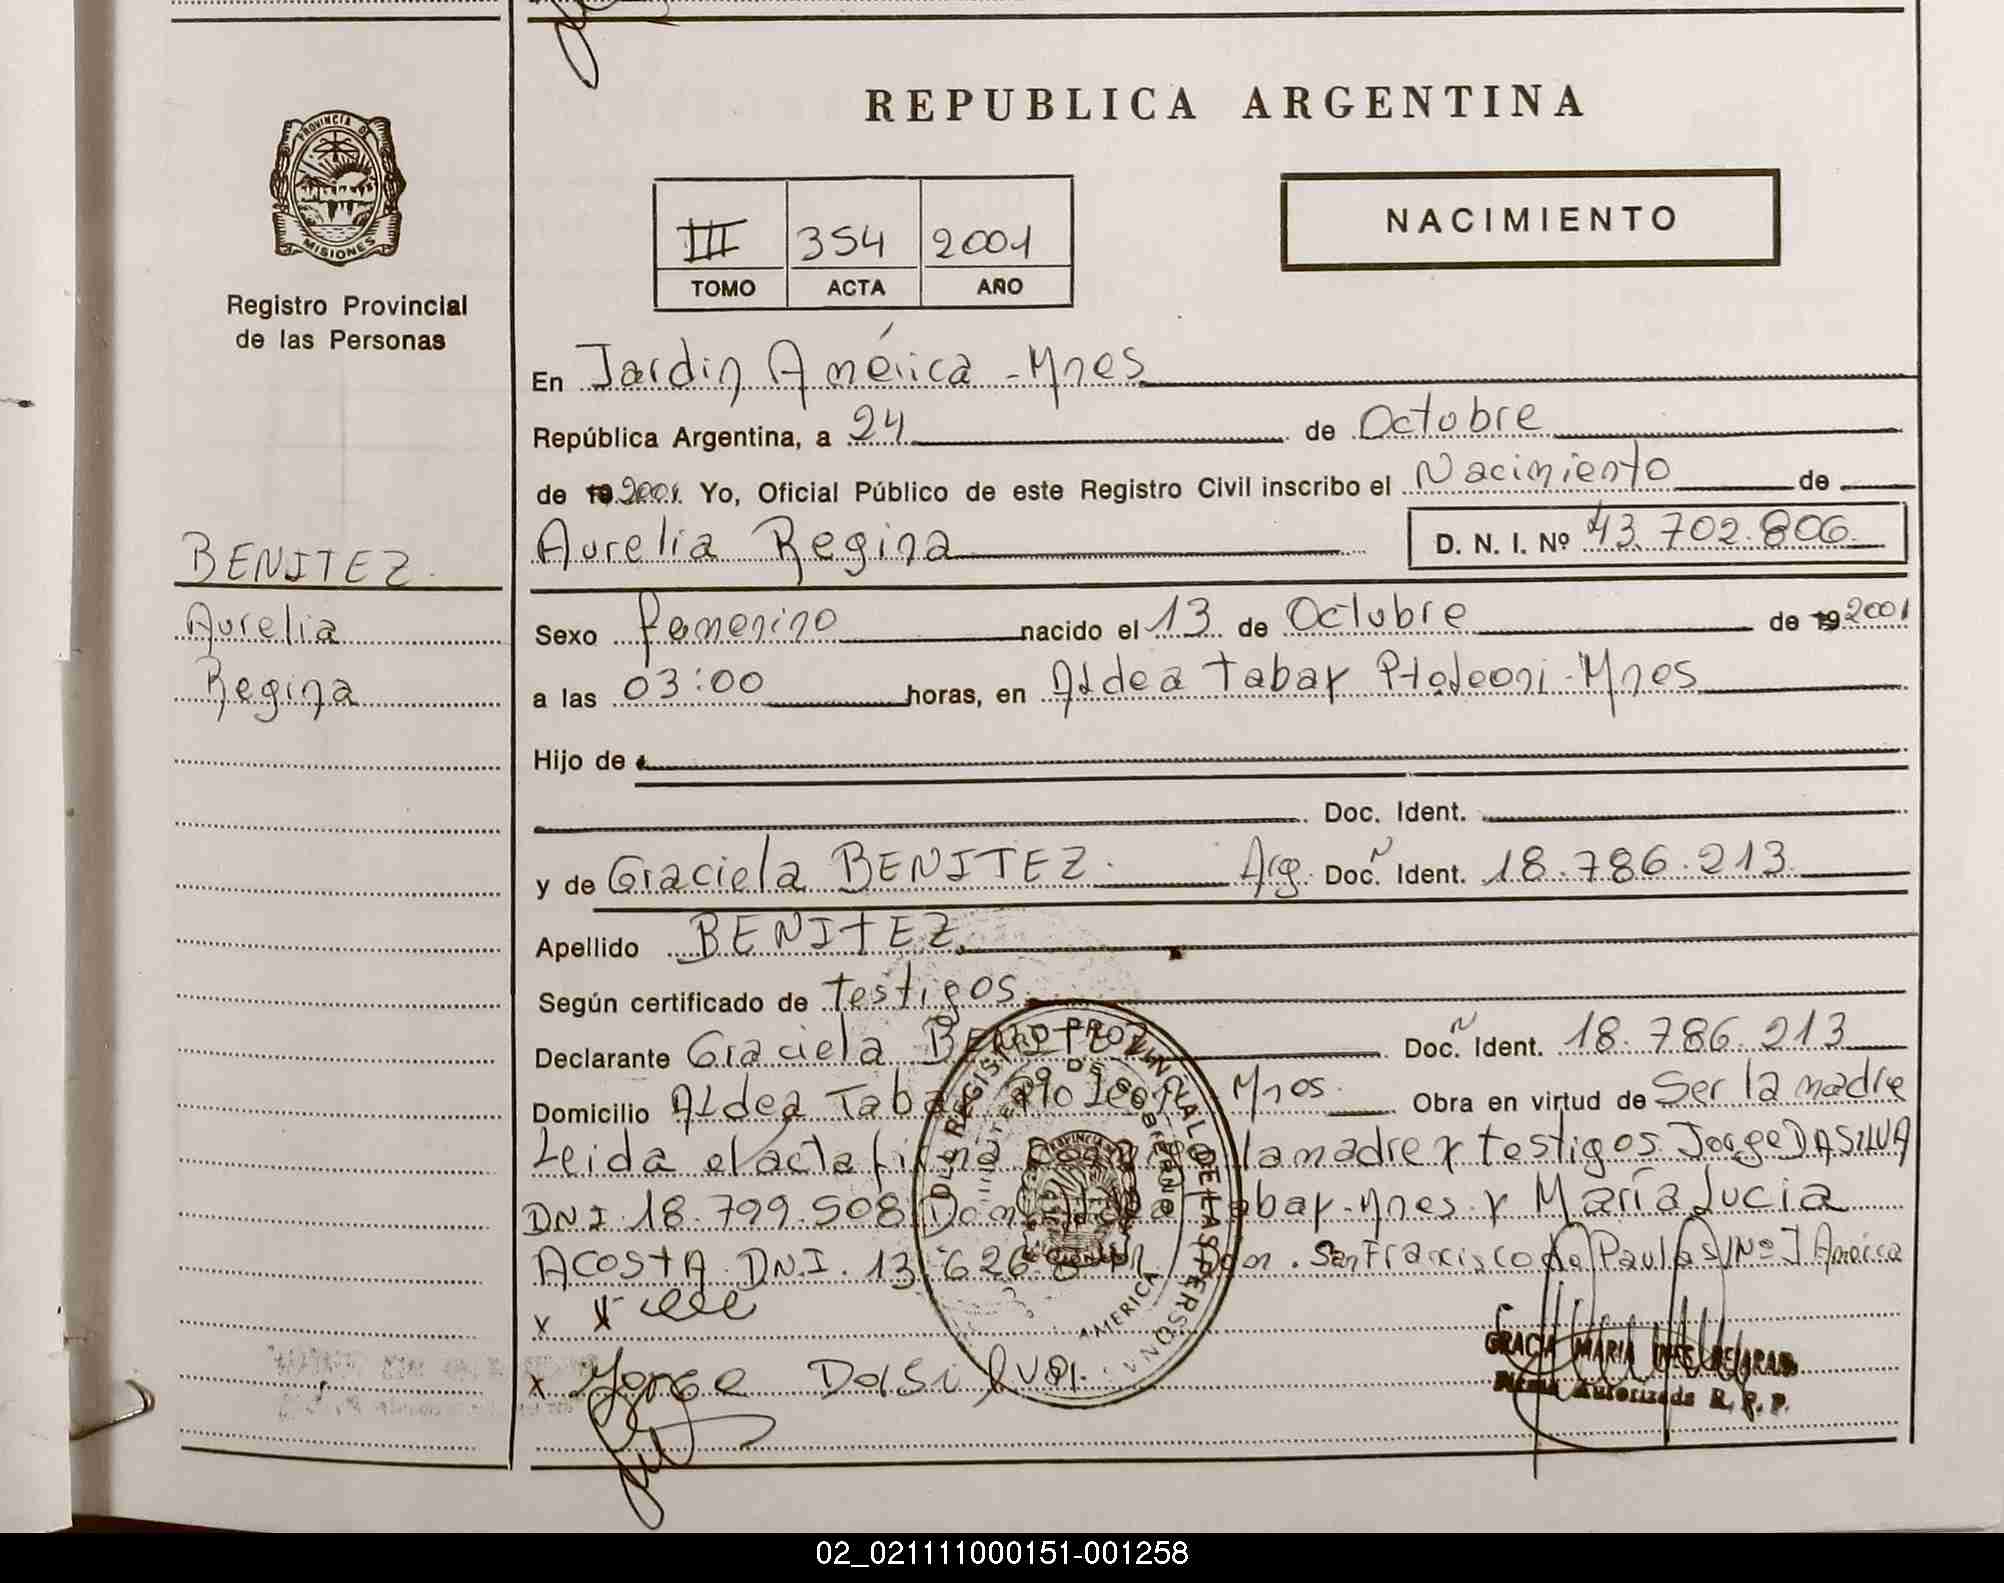 REPUBLICA ARGENTINA
PROVINCIA DE
MISIONES
Registro Provincial
de las Personas
III 354 2001
TOMO ACTA AÑO
NACIMIENTO
En Jardin América - Mnes
República Argentina, a 24 de Octubre
de 19 2001. Yo, Oficial Público de este Registro Civil inscribo el Nacimiento de
BENITEZ.
Aurelia Regina D. N. I. Nº 43.702.806
Aurelia
Regina
Sexo femenino nacido el 13 de Octubre de 19 2001
a las 03:00 horas, en Aldea Tabay Pto Leoni - Mnes
Hijo de
Doc. Ident.
y de Graciela BENITEZ. Arg. Doc. Ident. 18.786.213
Apellido BENITEZ
Según certificado de testigos
Declarante Graciela BENITEZ Doc. Ident. 18.786.213
Domicilio Aldea Tabay Pto Leoni Mnes. Obra en virtud de Ser la madre
Leida el acta firma la madre y testigos Jorge DASILVA
DNI 18.799.508 Dom. Aldea Tabay - Mnes y María Lucia
ACOSTA DN.I. 13.626 Dom. San Francisco de Paula S/Nº J América
x x
x Jorge DaSilva.
DEL REGISTRO PROVINCIAL DE LAS PERSONAS
AMERICA
GRACIA MARIA INES BEJARANO
Firma Autorizada R. P. P.
02_021111000151-001258